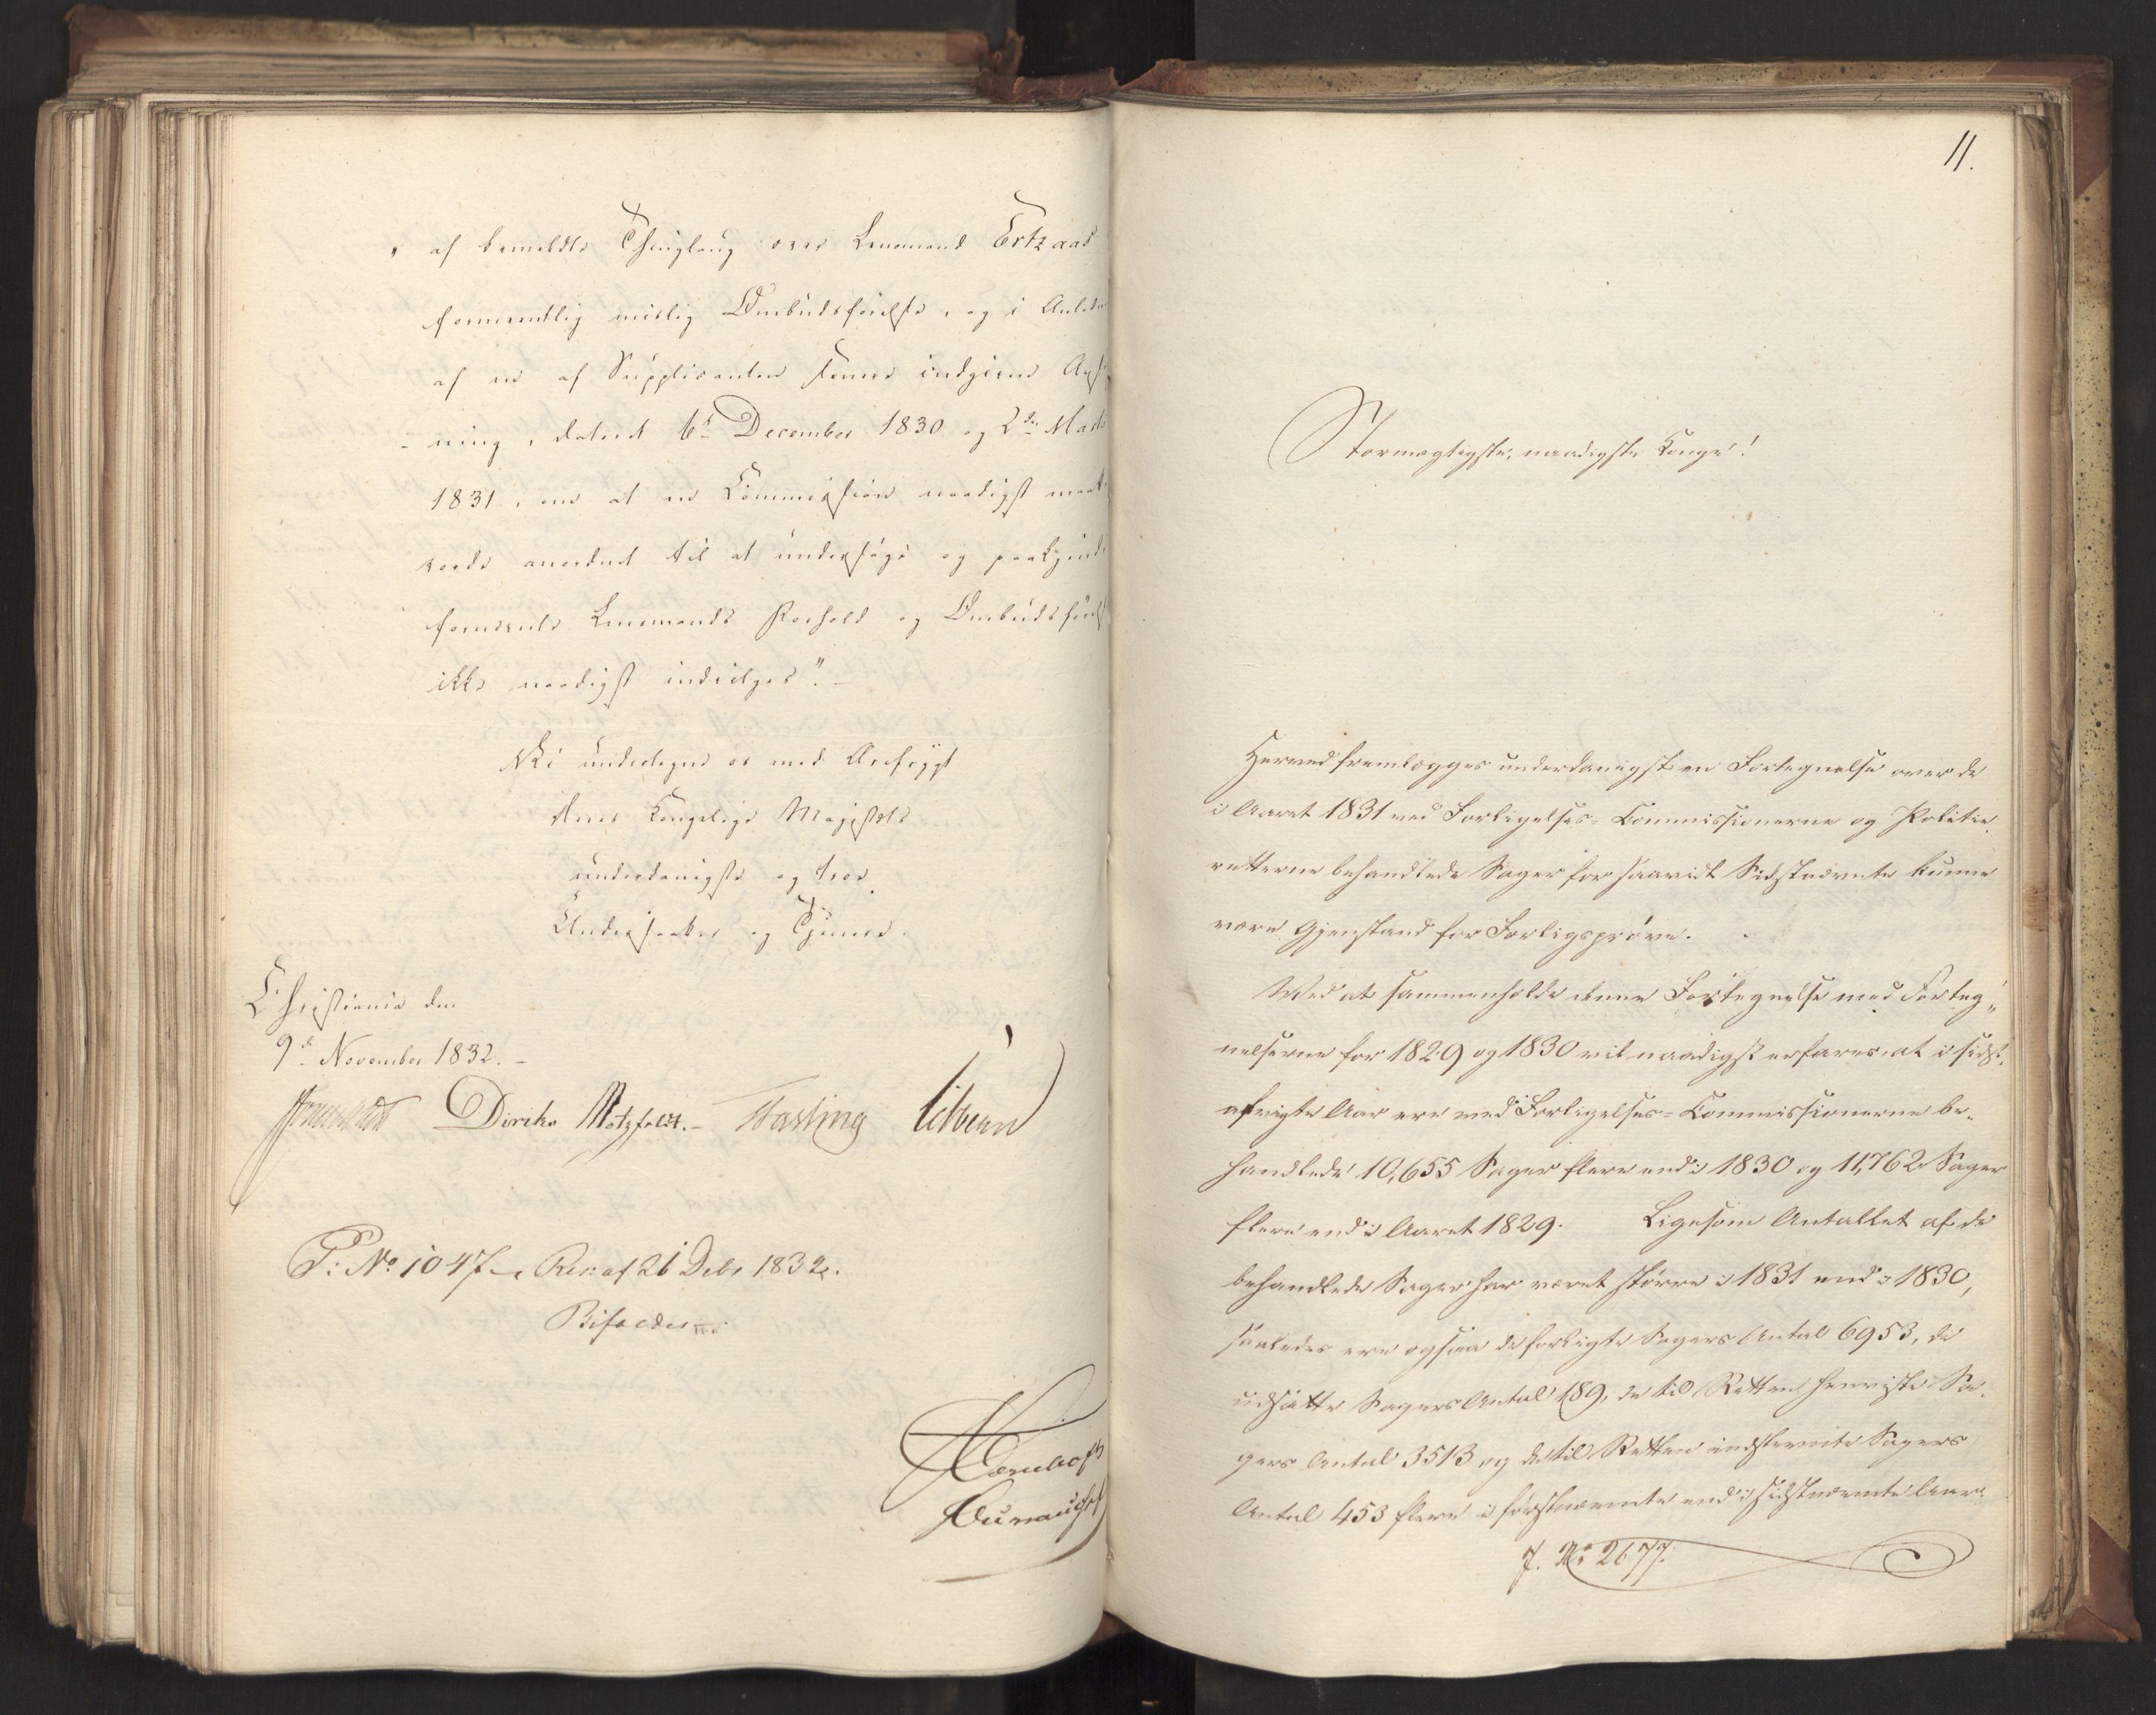 „ af bemeldte Thinglaug over Lensmand Ertzaas
formeentlig mislig Ombudsförelse, og i Anled
af en af Supplicanten senere indgiven Ansø
- ning, dateret 6te December 1830 og 2den Marts
1831, om at en Commission naadigst maat
vorde anordnet til at undersøge og paakjende
fornevnte Lensmands Forhold og Ombudsförelse
ikke naadigst indvilges". -
Vi undertegne os med Ærefrygt
Deres Kongelige Majestets
underdanigste og troe
Undersaatter og Tjenere.
Christiania den
9de November 1832. -
Diriks Motzfeldt. - Fasting
P: No 1047 - Res: af 21 Debr 1832.
Bifaldes
11.
Stormægtigste, naadigste Konge!
Herved fremlægges underdanigst en Fortegnelse over de
i Aaret 1831 ved Forligelses-Commissionerne og Politie
retterne behandlede Sager for saavidt Sidstnævnte kunne
være Gjenstand for Forligsprøve.
Ved at sammenholde denne Fortegnelse med Forteg„
nelserne for 1829 og 1830 vil naadigst erfares, at i sidst„
afvigte Aar ere ved Forligelses-Commissionerne be„
handlede 10,655 Sager flere end i 1830 og 11,762 Sager
flere end i Aaret 1829. Ligesom Antallet af de
behandlede Sager har været større i 1831 end i 1830,
saaledes ere ogsaa de forligte Sagers Antal 6953, de
udsatte Sagers Antal 189, de til Retten henviste Sa„
gers Antal 3513 og de til Retten indstevnte Sagers
Antal 453 flere i førstnævnte end i sidstnævnte Aar.
J. No 2677.